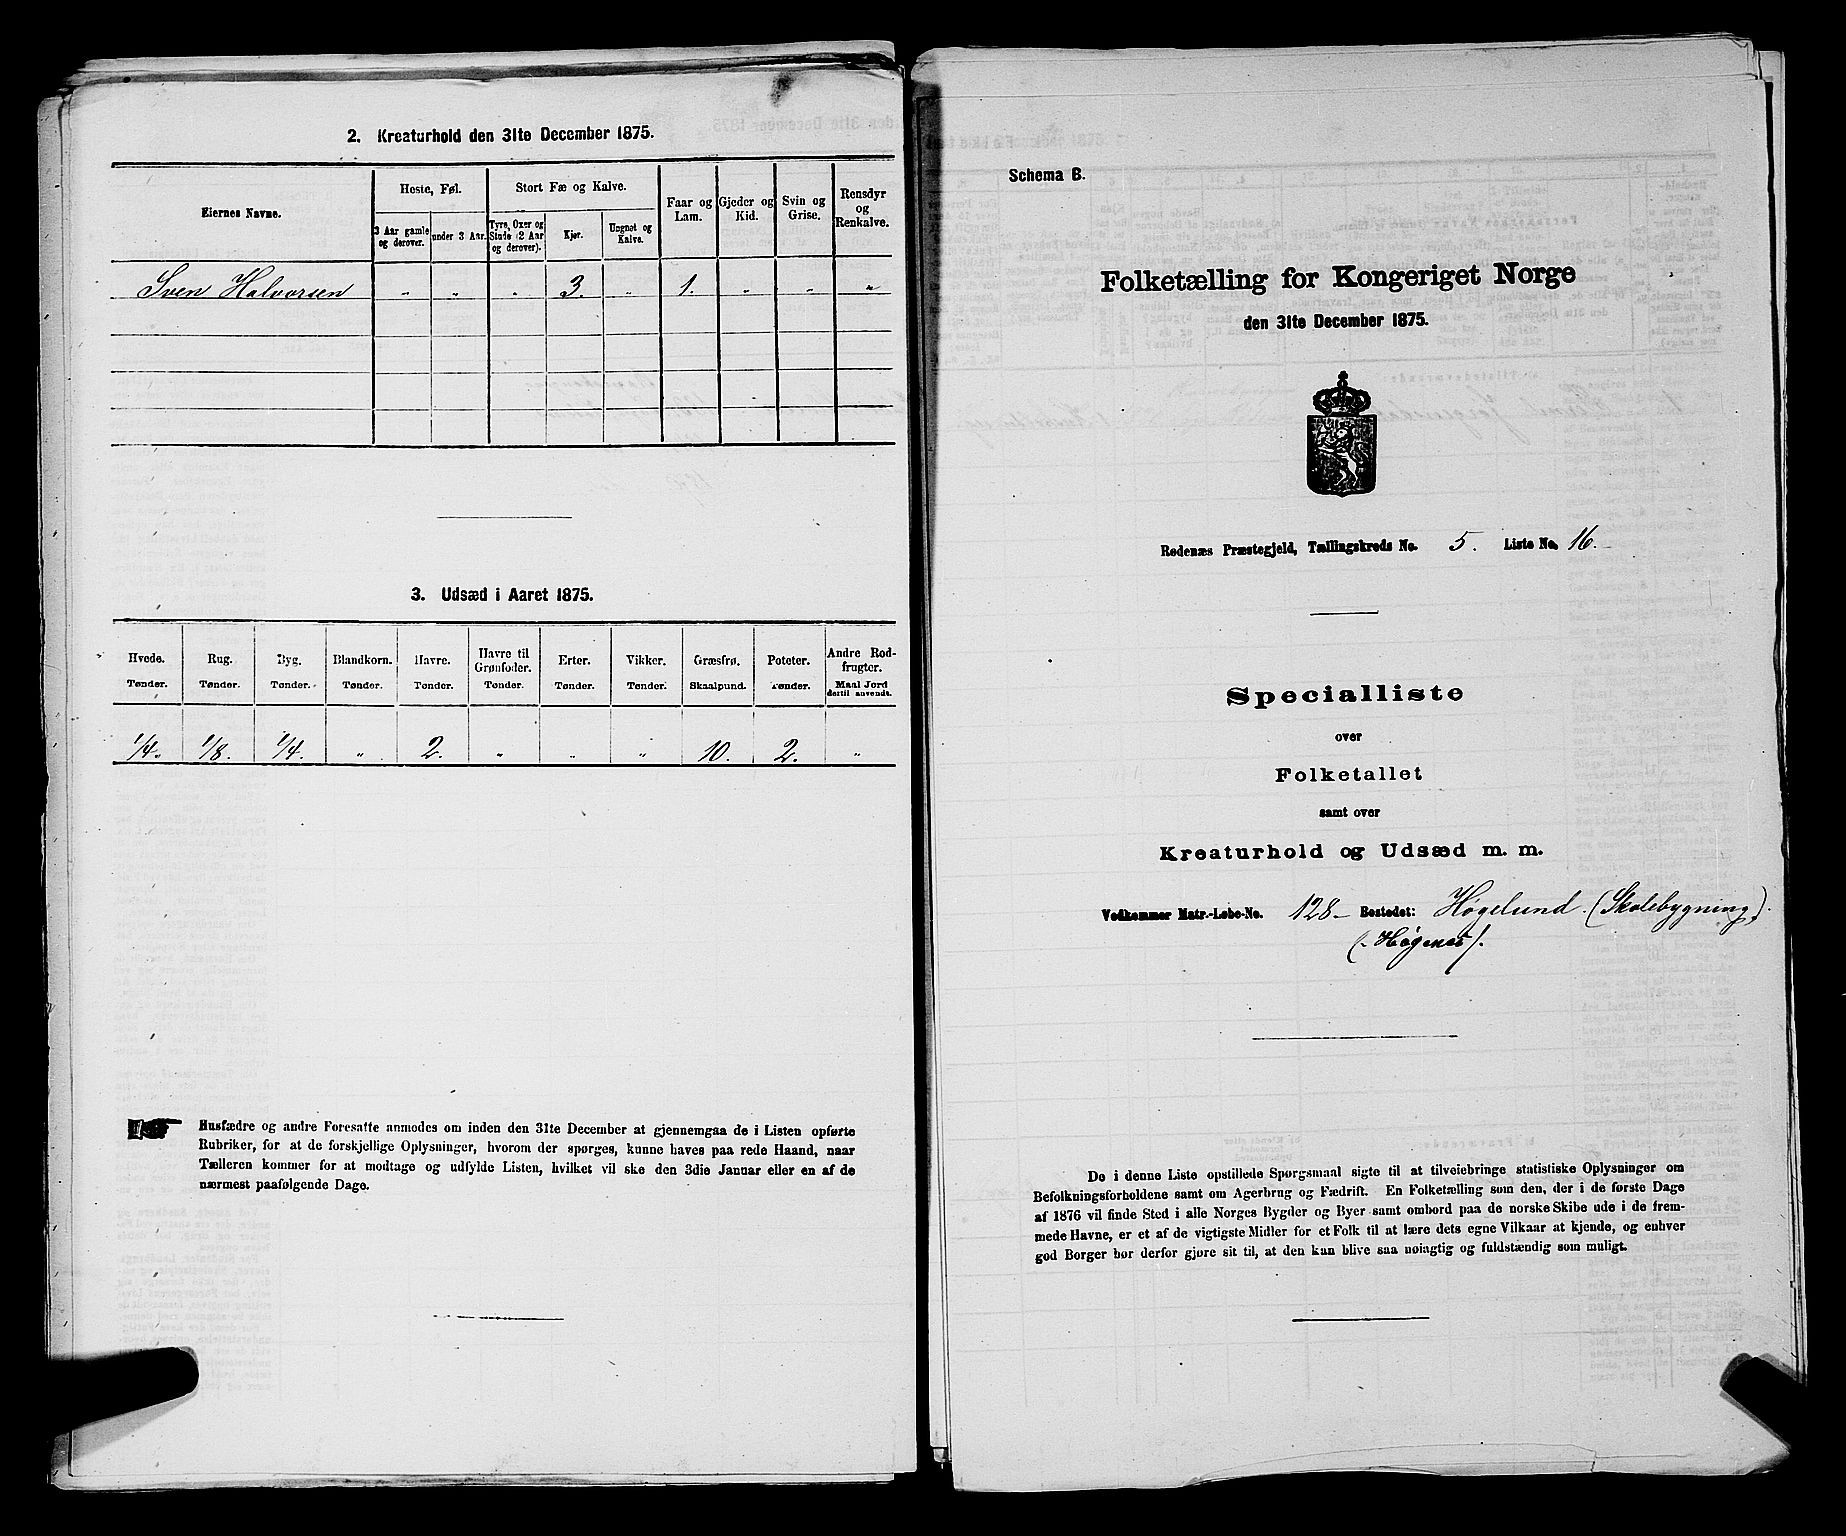 2. Kreaturhold den 31te December 1875.
Eiernes Navne.
Heste, Føl.
Stort Fæ og Kalve.
Faar og Lam.
Gjeder og Kid.
Svin og Grise.
Rensdyr og Renkalve.
3 Aar gamle og derover.
under 3 Aar.
Tyre, Oxer og Stude (2 Aar og derover).
Kjør.
Ungnøt og Kalve.
Sven Halvorsen " " " 3. " 1. " " "
3. Udsæd i Aaret 1875.
Hvede. Rug. Byg. Blandkorn. Havre. Havre til Grønfoder. Erter. Vikker. Græsfrø. Poteter. Andre Rodfrugter.
Tønder. Tønder. Tønder. Tønder. Tønder. Tønder. Tønder. Tønder. Skaalpund. Tønder. Maal Jord dertil anvendt.
1/4. 1/8. 1/4. " 2. " " " 10. 2. "
Husfædre og andre Foresatte anmodes om inden den 31te December at gjennemgaa de i Listen opførte
Rubriker, for at de forskjellige Oplysninger, hvorom der spørges, kunne haves paa rede Haand, naar
Tælleren kommer for at modtage og udfylde Listen, hvilket vil ske den 3die Januar eller en af de
nærmest paafølgende Dage.
Schema B.
Folketælling for Kongeriget Norge
den 31te December 1875.
Rødenæs Præstegjeld, Tællingskreds No. 5. Liste No. 16.
Specialliste
over
Folketallet
samt over
Kreaturhold og Udsæd m. m.
Vedkommer Matr.-Løbe-No. 128 Bostedet: Høgelund. (Skolebygning).
(Høgenes).
De i denne Liste opstillede Spørgsmaal sigte til at tilveiebringe statistiske Oplysninger om
Befolkningsforholdene samt om Agerbrug og Fædrift. En Folketælling som den, der i de første Dage
af 1876 vil finde Sted i alle Norges Bygder og Byer samt ombord paa de norske Skibe ude i de frem-
mede Havne, er et af de vigtigste Midler for et Folk til at lære dets egne Vilkaar at kjende, og enhver
god Borger bør derfor gjøre sit til, at den kan blive saa nøiagtig og fuldstændig som muligt.